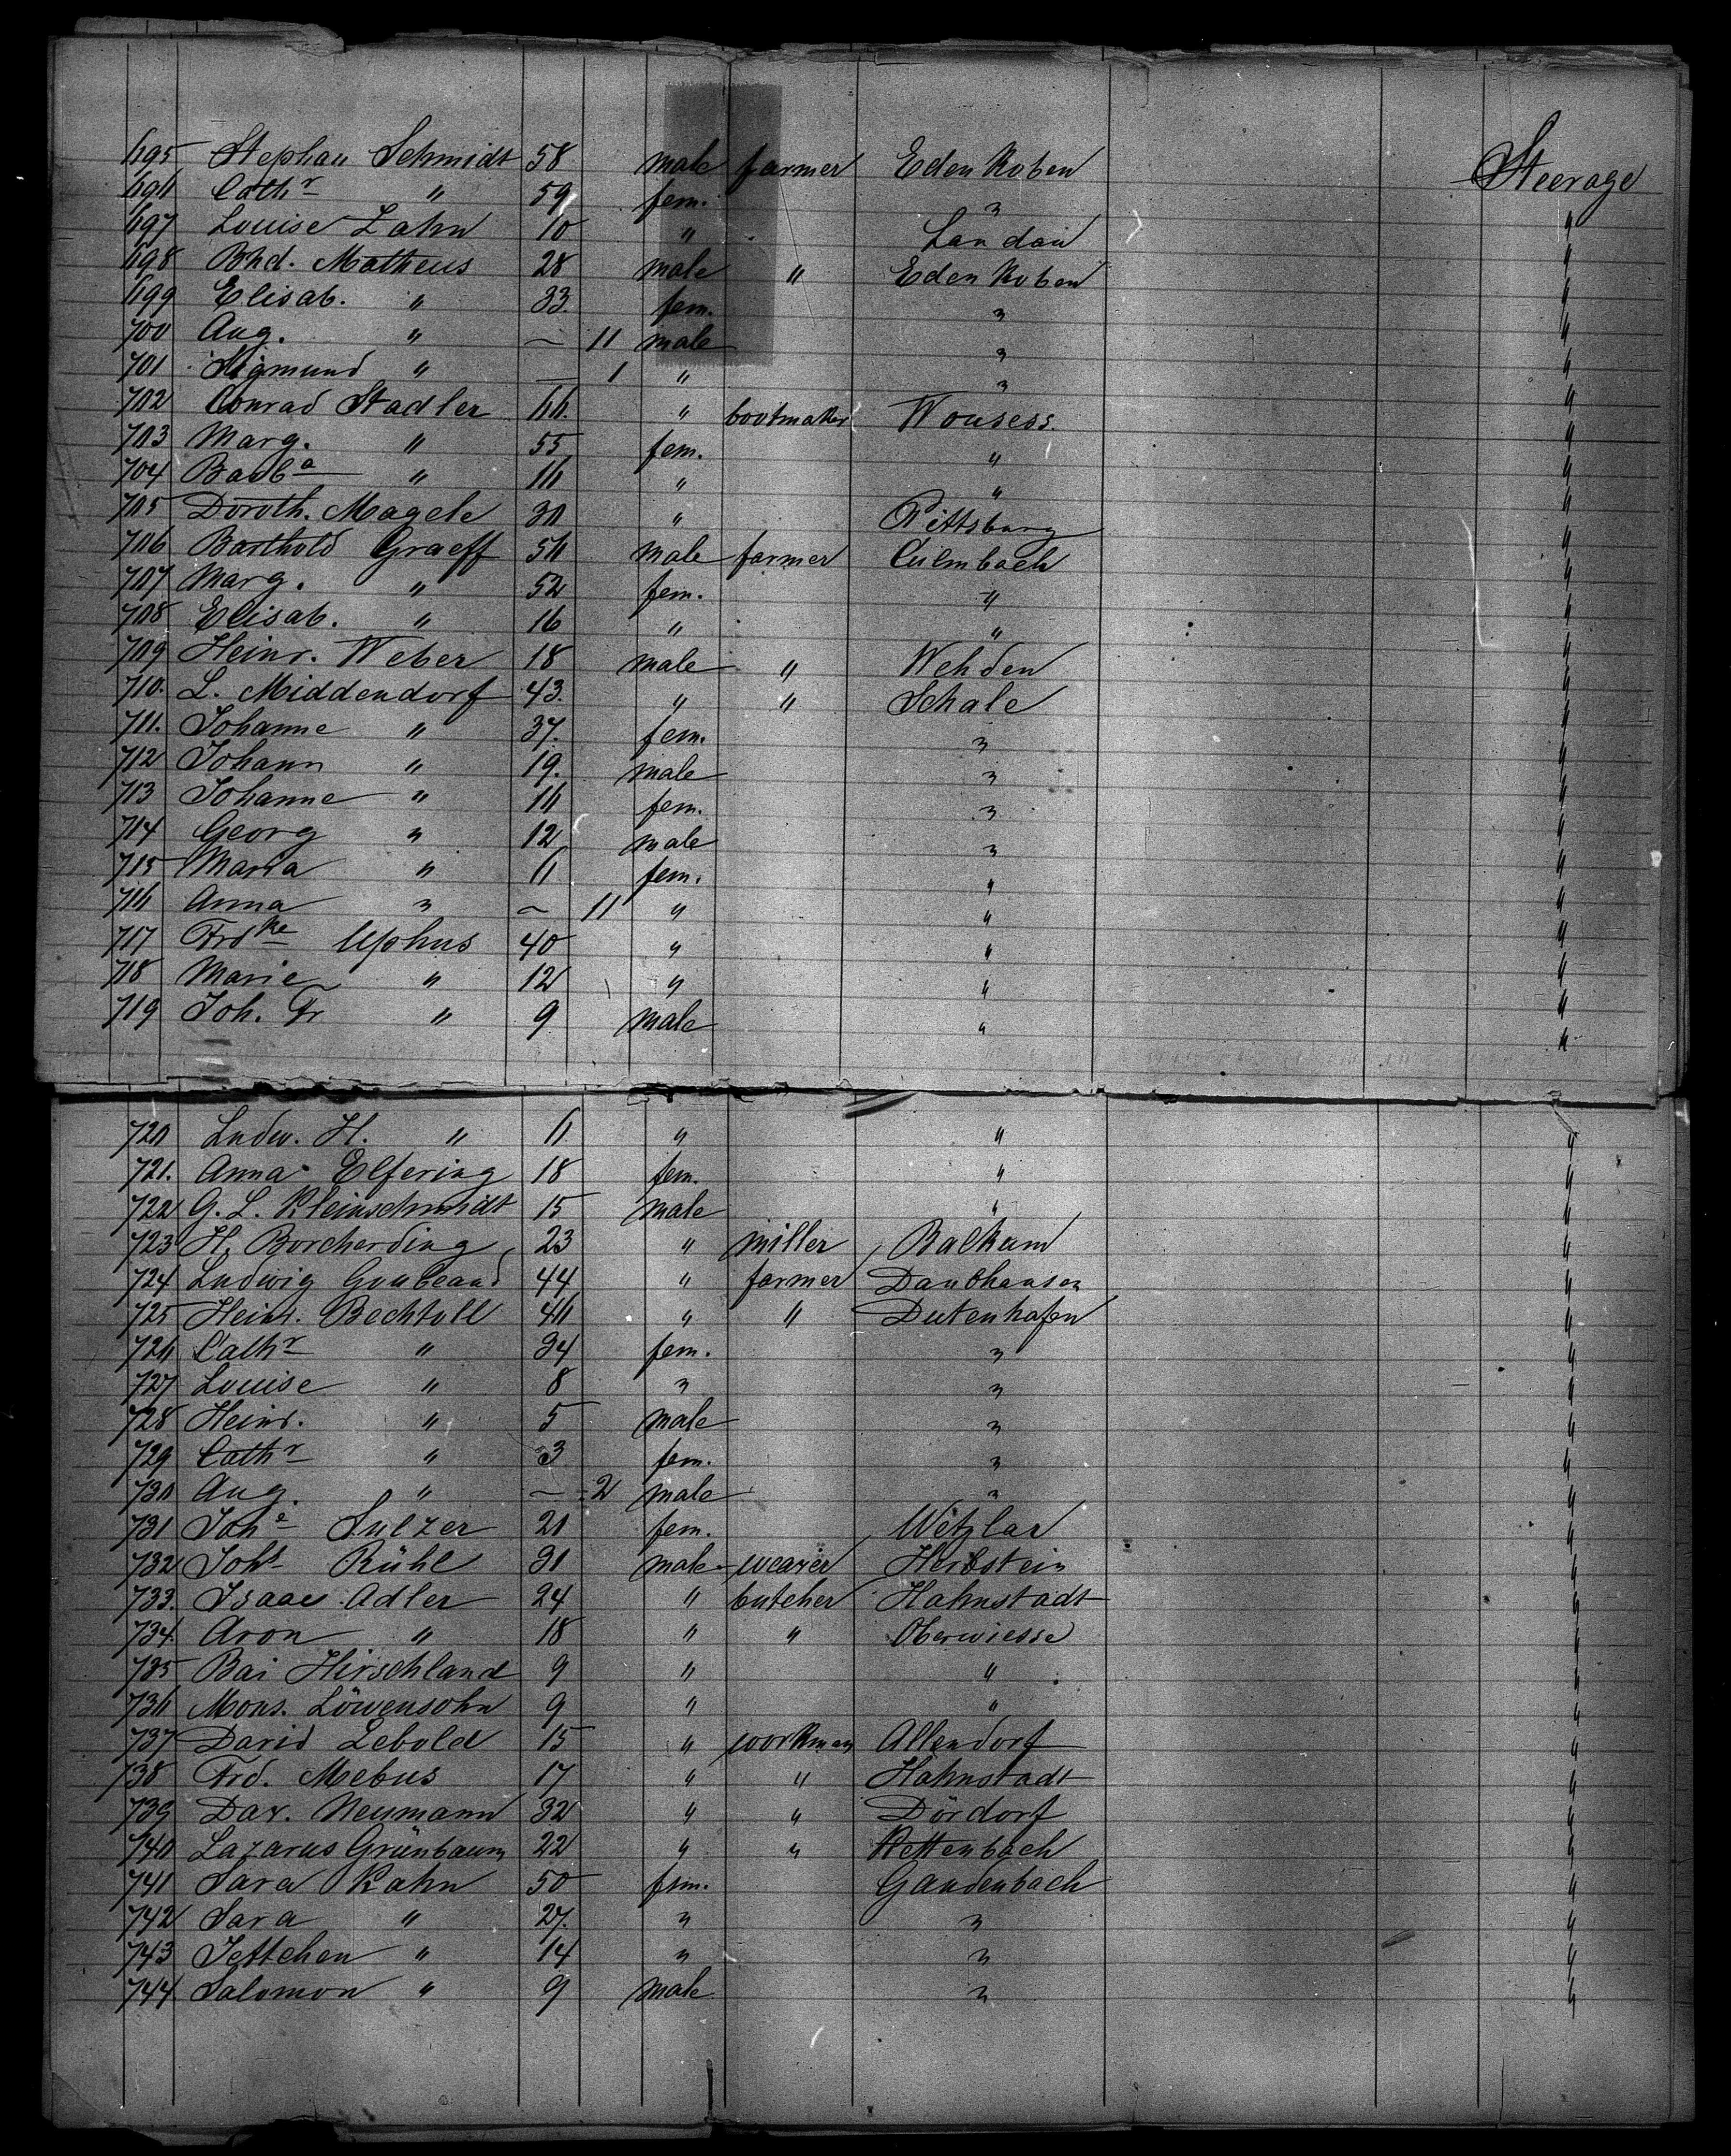 695 Stephan Schmidt 58 male farmer Edenkoben Steerage
696 Cathr " 59 fem. " "
697 Louise Zahn 10 " Landau "
698 Bhd. Matheus 28 male " Edenkoben "
699 Elisab. " 33. fem. " "
700 Aug. " — 11 male " "
701 Sigmund " — 1 " " "
702 Conrad Stadler 66. " bootmaker Wonsess. "
703 Marg. " 55 fem. " "
704 Barba " 16 " " "
705 Doroth. Magele 30 " Pittsburg "
706 Barthold Graeff 56 male farmer Culmbach "
707 Marg. " 52 fem. " "
708 Elisab. " 16 " " "
709 Heinr. Weber 18 male " Wehden "
710. L. Middendorf 43. " " Schale "
711. Johanne " 37. fem. " "
712 Johann " 19. male " "
713 Johanne " 16 fem. " "
714 Georg " 12 male " "
715 Maria " 6 fem. " "
716 Anna " — 11 " " "
717 Frdke Uphus 40 " " "
718 Marie " 12 " " "
719 Joh. Fr " 9 male " "
720 Ludw. H. " 6 " " "
721. Anna Elfering 18 fem. " "
722 G. L. Kleinschmidt 15 male " "
723 H. Borcherding 23 " miller Balkum "
724 Ludwig Goubeaud 44 " farmer Daubhausen "
725 Heinr. Bechtoll 46 " " Dutenhofen "
726 Cathr " 34 fem. " "
727 Louise " 8 " " "
728 Heinr. " 5 male " "
729 Cathr " 3 fem. " "
730 Aug. " — 2 male " "
731 Johe Sulzer 20 fem. Wetzlar "
732 Johs Rühl 30 male weaver Herbstein "
733. Isaac Adler 24 " butcher Hahnstadt "
734. Aron " 18 " " Oberwiesse "
735 Bai Hirschland 9 " " "
736 Mons. Löwensohn 9 " " "
737 David Lebold 15 " workman Allendorf "
738 Frd. Mebus 17 " " Hahnstadt "
739 Dav. Neumann 32 " " Dördorf "
740 Lazarus Grünbaum 22 " " Kettenbach "
741 Sara Kahn 50 fem. Gaudenbach "
742 Sara " 27. " " "
743 Jettchen " 14 " " "
744 Salomon " 9 male " "